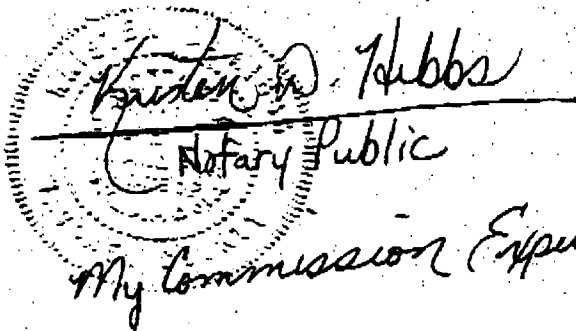 Kristen D. Hibbs
Notary Public
My Commission Expi